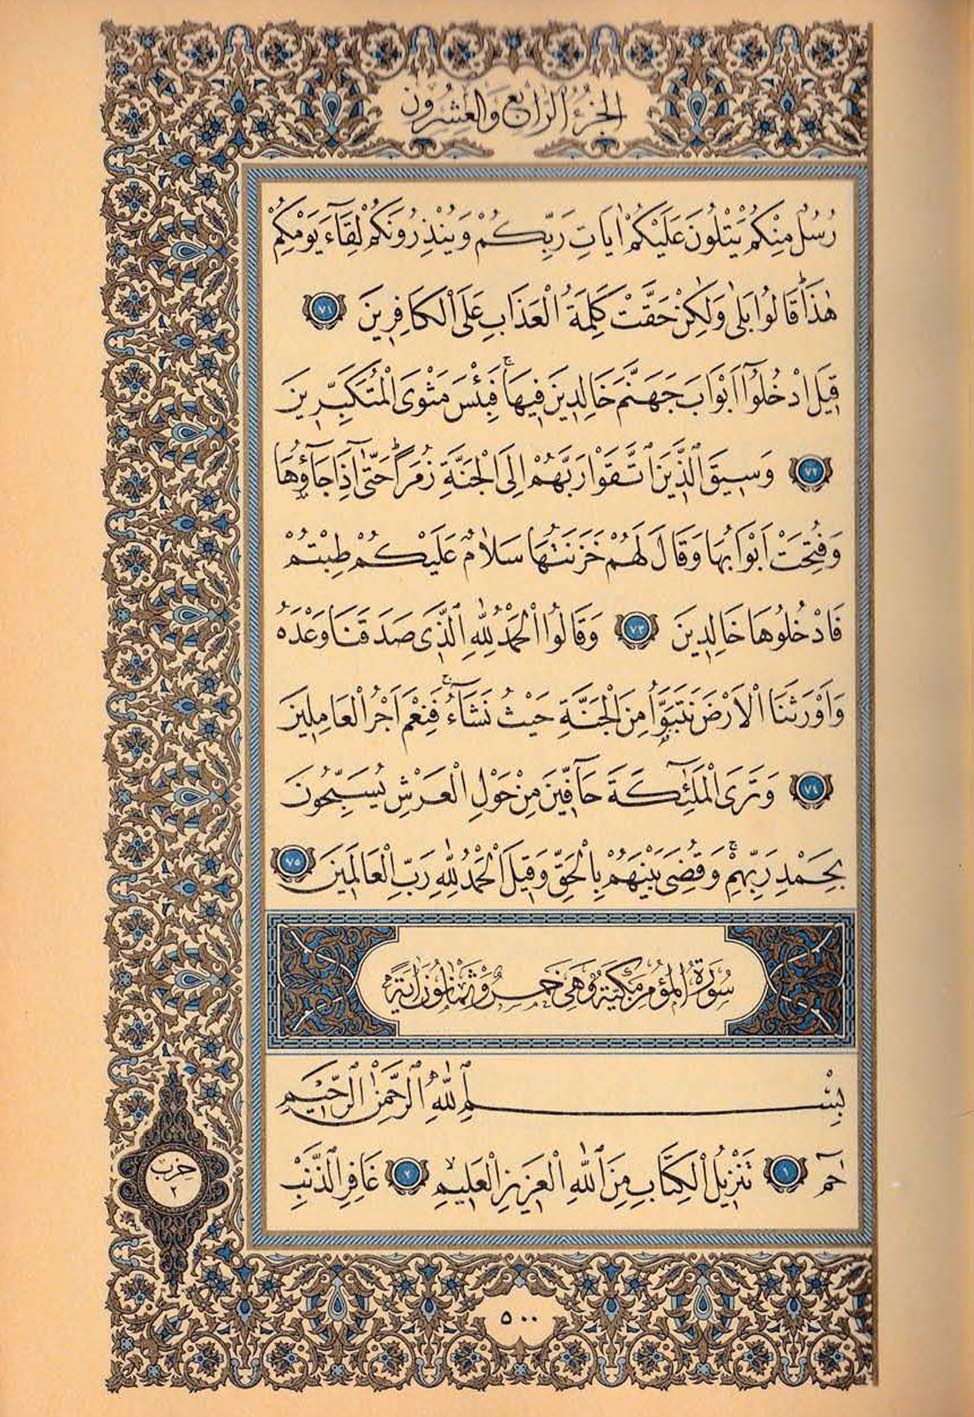 الجزء الرابع والعشرون
رُسُلٌ مِنْكُمْ يَتْلُونَ عَلَيْكُمْ اٰيَاتِ رَبِّكُمْ وَيُنْذِرُونَكُمْ لِقَٓاءَ يَوْمِكُمْ
هٰذَاۜ قَالُوا بَلٰى وَلٰكِنْ حَقَّتْ كَلِمَةُ الْعَذَابِ عَلَى الْكَافِر۪ينَ ﴿٧١﴾
ق۪يلَ ادْخُلُٓوا اَبْوَابَ جَهَنَّمَ خَالِد۪ينَ ف۪يهَاۚ فَبِئْسَ مَثْوَى الْمُتَكَبِّر۪ينَ
﴿٧٢﴾ وَس۪يقَ الَّذ۪ينَ اتَّقَوْا رَبَّهُمْ اِلَى الْجَنَّةِ زُمَرًاۜ حَتّٰٓى اِذَا جَٓاؤُ۫هَا
وَفُتِحَتْ اَبْوَابُهَا وَقَالَ لَهُمْ خَزَنَتُهَا سَلَامٌ عَلَيْكُمْ طِبْتُمْ
فَادْخُلُوهَا خَالِد۪ينَ ﴿٧٣﴾ وَقَالُوا الْحَمْدُ لِلّٰهِ الَّذ۪ي صَدَقَنَا وَعْدَهُ
وَاَوْرَثَنَا الْاَرْضَ نَتَبَوَّاُ مِنَ الْجَنَّةِ حَيْثُ نَشَٓاءُۚ فَنِعْمَ اَجْرُ الْعَامِل۪ينَ
﴿٧٤﴾ وَتَرَى الْمَلٰٓئِكَةَ حَٓافّ۪ينَ مِنْ حَوْلِ الْعَرْشِ يُسَبِّحُونَ
بِحَمْدِ رَبِّهِمْۚ وَقُضِيَ بَيْنَهُمْ بِالْحَقِّ وَق۪يلَ الْحَمْدُ لِلّٰهِ رَبِّ الْعَالَم۪ينَ ﴿٧٥﴾
سُورَةُ الْمُؤْمِنِ مَكِّيَّةٌ وَهِيَ خَمْسٌ وَثَمَانُونَ اٰيَةً
بِسْمِ اللّٰهِ الرَّحْمٰنِ الرَّح۪يمِ
حٰمٓ ﴿١﴾ تَنْز۪يلُ الْكِتَابِ مِنَ اللّٰهِ الْعَز۪يزِ الْعَل۪يمِۙ ﴿٢﴾ غَافِرِ الذَّنْبِ
حزب
٢
٥٠٠